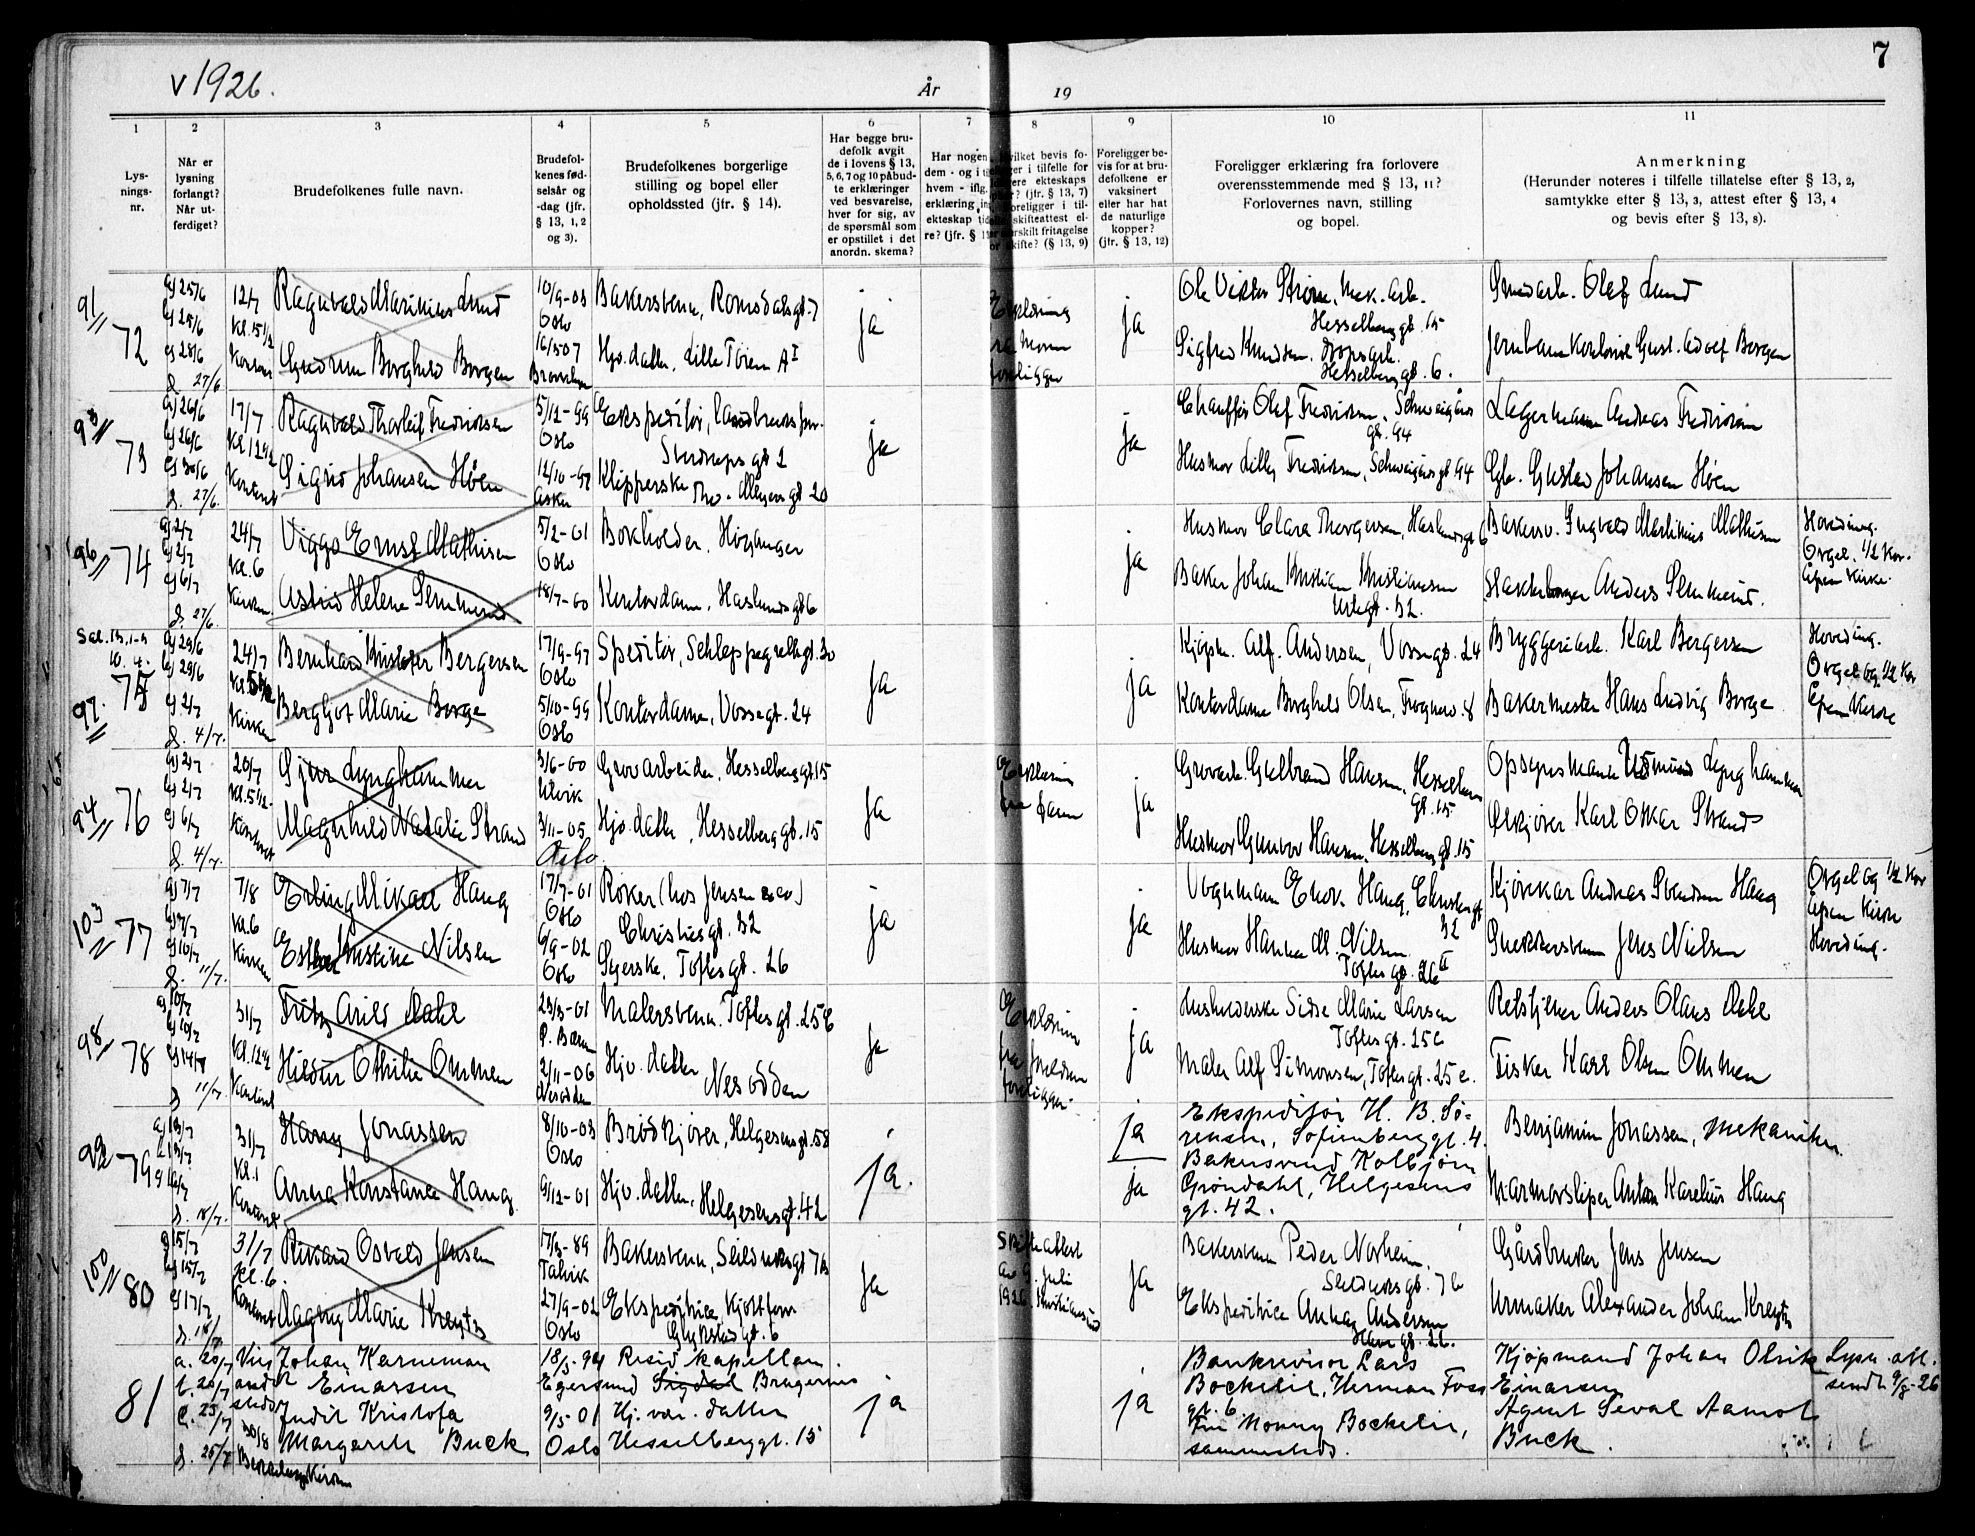 v 1926.
År
19
7
1
2
3
4
5
6
7
8
9
10
11
Lys-
nings-
nr.
Når er
lysning
forlangt?
Når ut-
ferdiget?
Brudefolkenes fulle navn.
Brudefol-
kenes fød-
selsår og
-dag (jfr.
§ 13, 1, 2
og 3).
Brudefolkenes borgerlige
stilling og bopel eller
opholdssted (jfr. § 14).
Har begge bru-
defolk avgit
de i lovens § 13,
5, 6, 7 og 10 påbud-
te erklæringer
ved besvarelse,
hver for sig, av
de spørsmål som
er opstillet i det
anordn. skema?
Har nogen
dem - og i
hvem - iflg.
erklæring
ekteskap
re? (jfr. §
hvilket bevis fo-
i tilfelle for
ekteskaps
? (jfr. § 13, 7)
foreligger i til-
skifteattest el-
særskilt fritagelse
skifte? (§ 13, 9)
Foreligger be-
vis for at bru-
defolkene er
vaksinert
eller har hat
de naturlige
kopper?
(jfr. § 13, 12)
Foreligger erklæring fra forlovere
overensstemmende med § 13, 11?
Forlovernes navn, stilling
og bopel.
Anmerkning
(Herunder noteres i tilfelle tillatelse efter § 13, 2,
samtykke efter § 13, 3, attest efter § 13, 4
og bevis efter § 13, 8).
91
72
a) 25/6
b) 25/6
c) 28/6
d. 27/6
12/7
Kl. 5 1/2
Ragnvald Marinius Lund
Gudrun Borghild Borgen
10/9-03
Oslo
16/5 07
Bakersvenn, Romsdalsgt. 7
Hjv. datter, Lille Tøien A I
ja
Erklæring
fra Moren
foreligger
ja
Ole Viktor Strøm, Mek. arb.
Hesselbergs gt. 15
Sigfred Knudsen.
Hesselbergs gt. 6.
Smedarb. Olaf Lund
Jernbanekontorist Gust. Adolf Borgen
73
a) 26/6
b) 26/6
c) 30/6
d. 27/6.
17/7
Kl. 12 1/2
Kontoret
Ragnvald Thorleif Fredriksen
Sigrid Johansen Høen
5/12-99
Oslo
12/10-97
Asker
Ekspeditør,
Sverdrups gt 2
Klipperske Tho. Meyers gt 20
ja
ja
Chauffør Olaf Fredriksen, Schweigårds
gt. 94
Husmor Lilly Fredriksen, Schweigårds gt 94
Lagermann Andreas Fredriksen
Gbr. Gustav Johansen Høen
96
74
a) 2/7
b) 2/7
c) 6/7
d. 27/6.
24/7
Kl. 6
Kirken.
Viggo Ernst Mathisen
Astrid Helene Semmerud
5/2-01
Oslo
18/7-00
Bokholder. Høyanger
Kontordame, Haslunds gt 6
ja
Husmor Clara Thorgersen, Haslunds gt 6
Baker Johan Kristian Kristiansen
Urtegt. 32.
Bakersv. Ingvald Martinius Mathisen
Anders Semmerud.
Hoveding.
Orgel. 1/2 Kor.
Åpen Kirke.
97.
75
a) 29/6
b) 29/6
c) 2/7
d. 4/7.
24/7
Kirken
Bernhard Kristofer Bergersen
Bergljot Marie Borge
17/9-97
Oslo
5/10-99
Oslo
Speditør, Schleppegrells gt. 30
Kontordame, Vossegt. 24
ja
ja
Kjøpm. Alf. Andersen, Vossegt. 24
Kontordame Borghild Olsen, Frognerv. 8
Bryggeriarb. Karl Bergersen
Bakermester Hans Ludvig Borge
Hoveding.
Orgel og 1/2 Kor
Åpen Kirke
94
76
a) 2/7
b) 2/7
c) 6/7
d. 4/7.
20/7
Kl. 5 1/2.
Kontoret
Sjur Lynghammer
Magnhild Natalie Strand
3/6-00
Ulvik
3/11-05
Oslo.
Grovarbeider, Hesselbergs gt. 15
Hjv. datter, Hesselbergs gt. 15
ja
Erklæring
fra faren
ja
Grovarb. Gulbrand Hansen, Hesselberg
gt. 15.
Husmor Gunvor Hansen, Hesselbergs gt. 15
Opsynsmann Lynghammer
Ølkjører Karl Oskar Strand
103
77
a) 7/7
b) 7/7
c) 10/7
d. 11/7.
7/8
Kl. 6
Kirken
Erling Mikael Haug
Esther Kristine Nilsen
17/7-01
Oslo
6/9-02
Oslo
Røker (hos Jensen & co)
Christies gt. 32
Syerske, Toftes gt. 26
ja
ja
Vognmann Enok Haug, Christies gt
32
Husmor Hanna M. Nilsen
Toftes gt. 26 II
Kjørekar Andreas Svendsen Haug
Snekkersvenn Jens Nielsen
Orgel og 1/2 Kor
Åpen Kirke
Hoveding.
98
78
a) 10/7
b) 10/7
c) 14/7
d. 11/7.
31/7
Kl. 12 1/2
Kontoret
Fritz Arild Dahl
Hildur Othilie Ommen
23/3-01
Ø. Bærum
2/11-06
Nesodden
Malersvenn. Toftes gt. 25 c
Hjv. datter
Nesodden
ja
Erklæring
fra foreldren
foreligger.
ja
Husholderske Sidse Marie Larsen
Toftes gt. 25 c
Maler Alf Simonsen, Toftes gt. 25 c.
Retstjener Anders Olaus Dahl
Fisker Karl Olsen Ommen
99
79
31/7
Kl. 1
Kontoret
Harry Jonassen
Anna Konstanse Haug
8/10-03
Oslo
9/12-01
Brødkjører, Helgesens gt. 58
Hjv. datter, Helgesens gt. 42
ja.
ja
ja
Ekspeditør H. B. Sø-
rensen, Sofienberggt. 4.
Bakersvend Kolbjørn
Grøndahl, Helgesens
gt. 42.
Benjamin Jonassen, mekaniker
Marmorsliper Anton Karelius Haug
100
80
a) 15/7
b) 15/7
c) 17/7
31/7
Kl. 6.
Kontoret
Rikard Osvald Jensen
Dagny Marie Kreutz
17/3-89
Talvik
27/9-02
Oslo
Bakersvenn, Seilduksgt 7b
Ekspeditrice, Kjøttforr.
Glykstads gt. 6
ja
Skifteattest
av 9. juli
1926. Kristiansund
ja
Bakersvenn Peder Norheim,
Seilduksgt. 7b
Ekspeditrice Anna Andersen
Gårdbruker Jens Jensen
Urmaker Alexander Johan Kreutz
81
a. 20/7
b. 20/7
c. 23/7
d. 25/7
30/8
Johan Karneman
Einarsen
Judit Kristofa
Margareth Buck
18/3-94
Egersund
9/5-01
Oslo
Resid. kapellan.
Sigdal Bragernes
Hj. vær. datter
Hesselberggt. 15
ja
ja
Bankrevisor Lars
Bockelie, Herman Foss
gt. 6
Fru Nonny Bockelie,
sammesteds.
Kjøpmand Johan Olrik
Einarsen
Agent Seval Aamot
Buck.
Lysn. att.
sendt 9/8-26